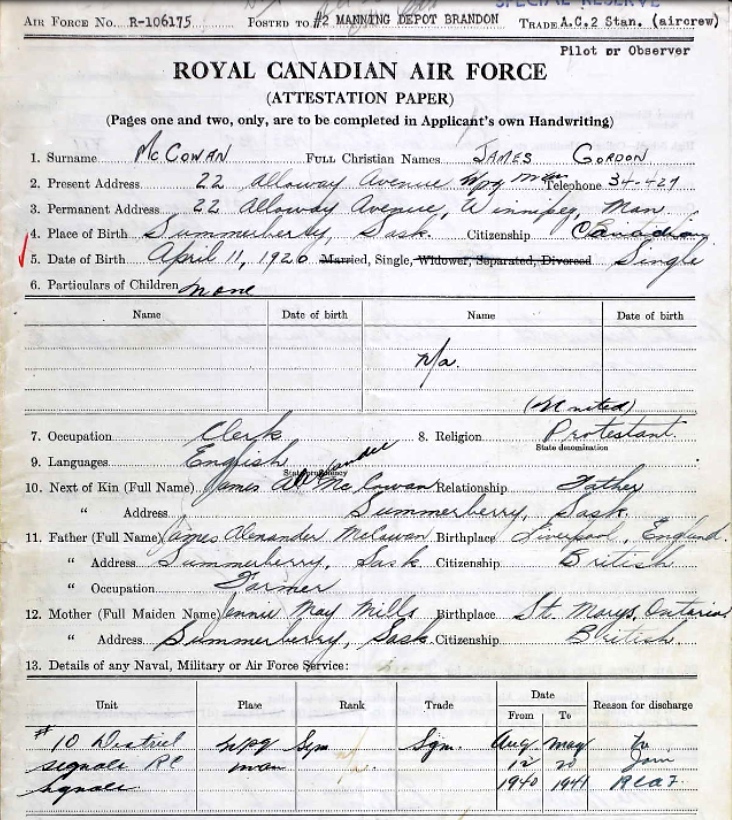 SPECIAL RESERVE
AIR FORCE NO. R-106175 POSTED TO #2 MANNING DEPOT BRANDON TRADE A.C.2 Stan. (aircrew)
Pilot or Observer
ROYAL CANADIAN AIR FORCE
(ATTESTATION PAPER)
(Pages one and two, only, are to be completed in Applicant's own Handwriting)
1. Surname McCOWAN FULL CHRISTIAN NAMES JAMES GORDON
2. Present Address 22 Alloway Avenue Wpg Man Telephone 34-427
3. Permanent Address 22 Alloway Avenue, Winnipeg, Man.
4. Place of Birth Summerberry, Sask. Citizenship Canadian
5. Date of Birth April 11, 1920 Married, Single, Widower, Separated, Divorced Single
6. Particulars of Children none
Name Date of birth Name Date of birth
n/a.
(United)
7. Occupation Clerk 8. Religion Protestant.
State denomination
9. Languages English
State proficiency
10. Next of Kin (Full Name) James Alexander McCowan Relationship Father
" Address Summerberry, Sask.
11. Father (Full Name) James Alexander McCowan Birthplace Liverpool, England.
" Address Summerberry, Sask Citizenship British
" Occupation Farmer
12. Mother (Full Maiden Name) Jennie May Mills Birthplace St. Marys, Ontario
" Address Summerberry, Sask. Citizenship British.
13. Details of any Naval, Military or Air Force Service:
Unit Place Rank Trade Date Reason for discharge
From To
#10 District Wpg Sgm Sgm. Aug May to
signals RC man 12 20 Join
signals 1940 1941 RCAF